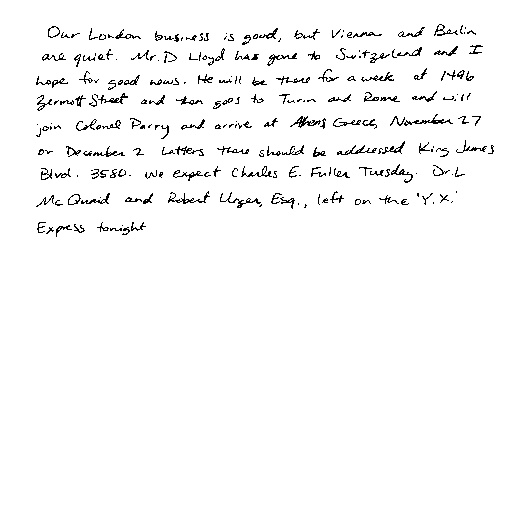 Our London business is good, but Vienna and Berlin
are quiet. Mr. D Lloyd has gone to Switzerland and I
hope for good news. He will be there for a week at 1496
Zermott Street and then goes to Turin and Rome and will
join Colonel Parry and arrive at Athens Greece, November 27
or December 2 Letters there should be addressed King James
Blvd. 3580. We expect Charles E. Fuller Tuesday. Dr. L
McQuaid and Robert Unger, Esq., left on the 'Y.X.'
Express tonight